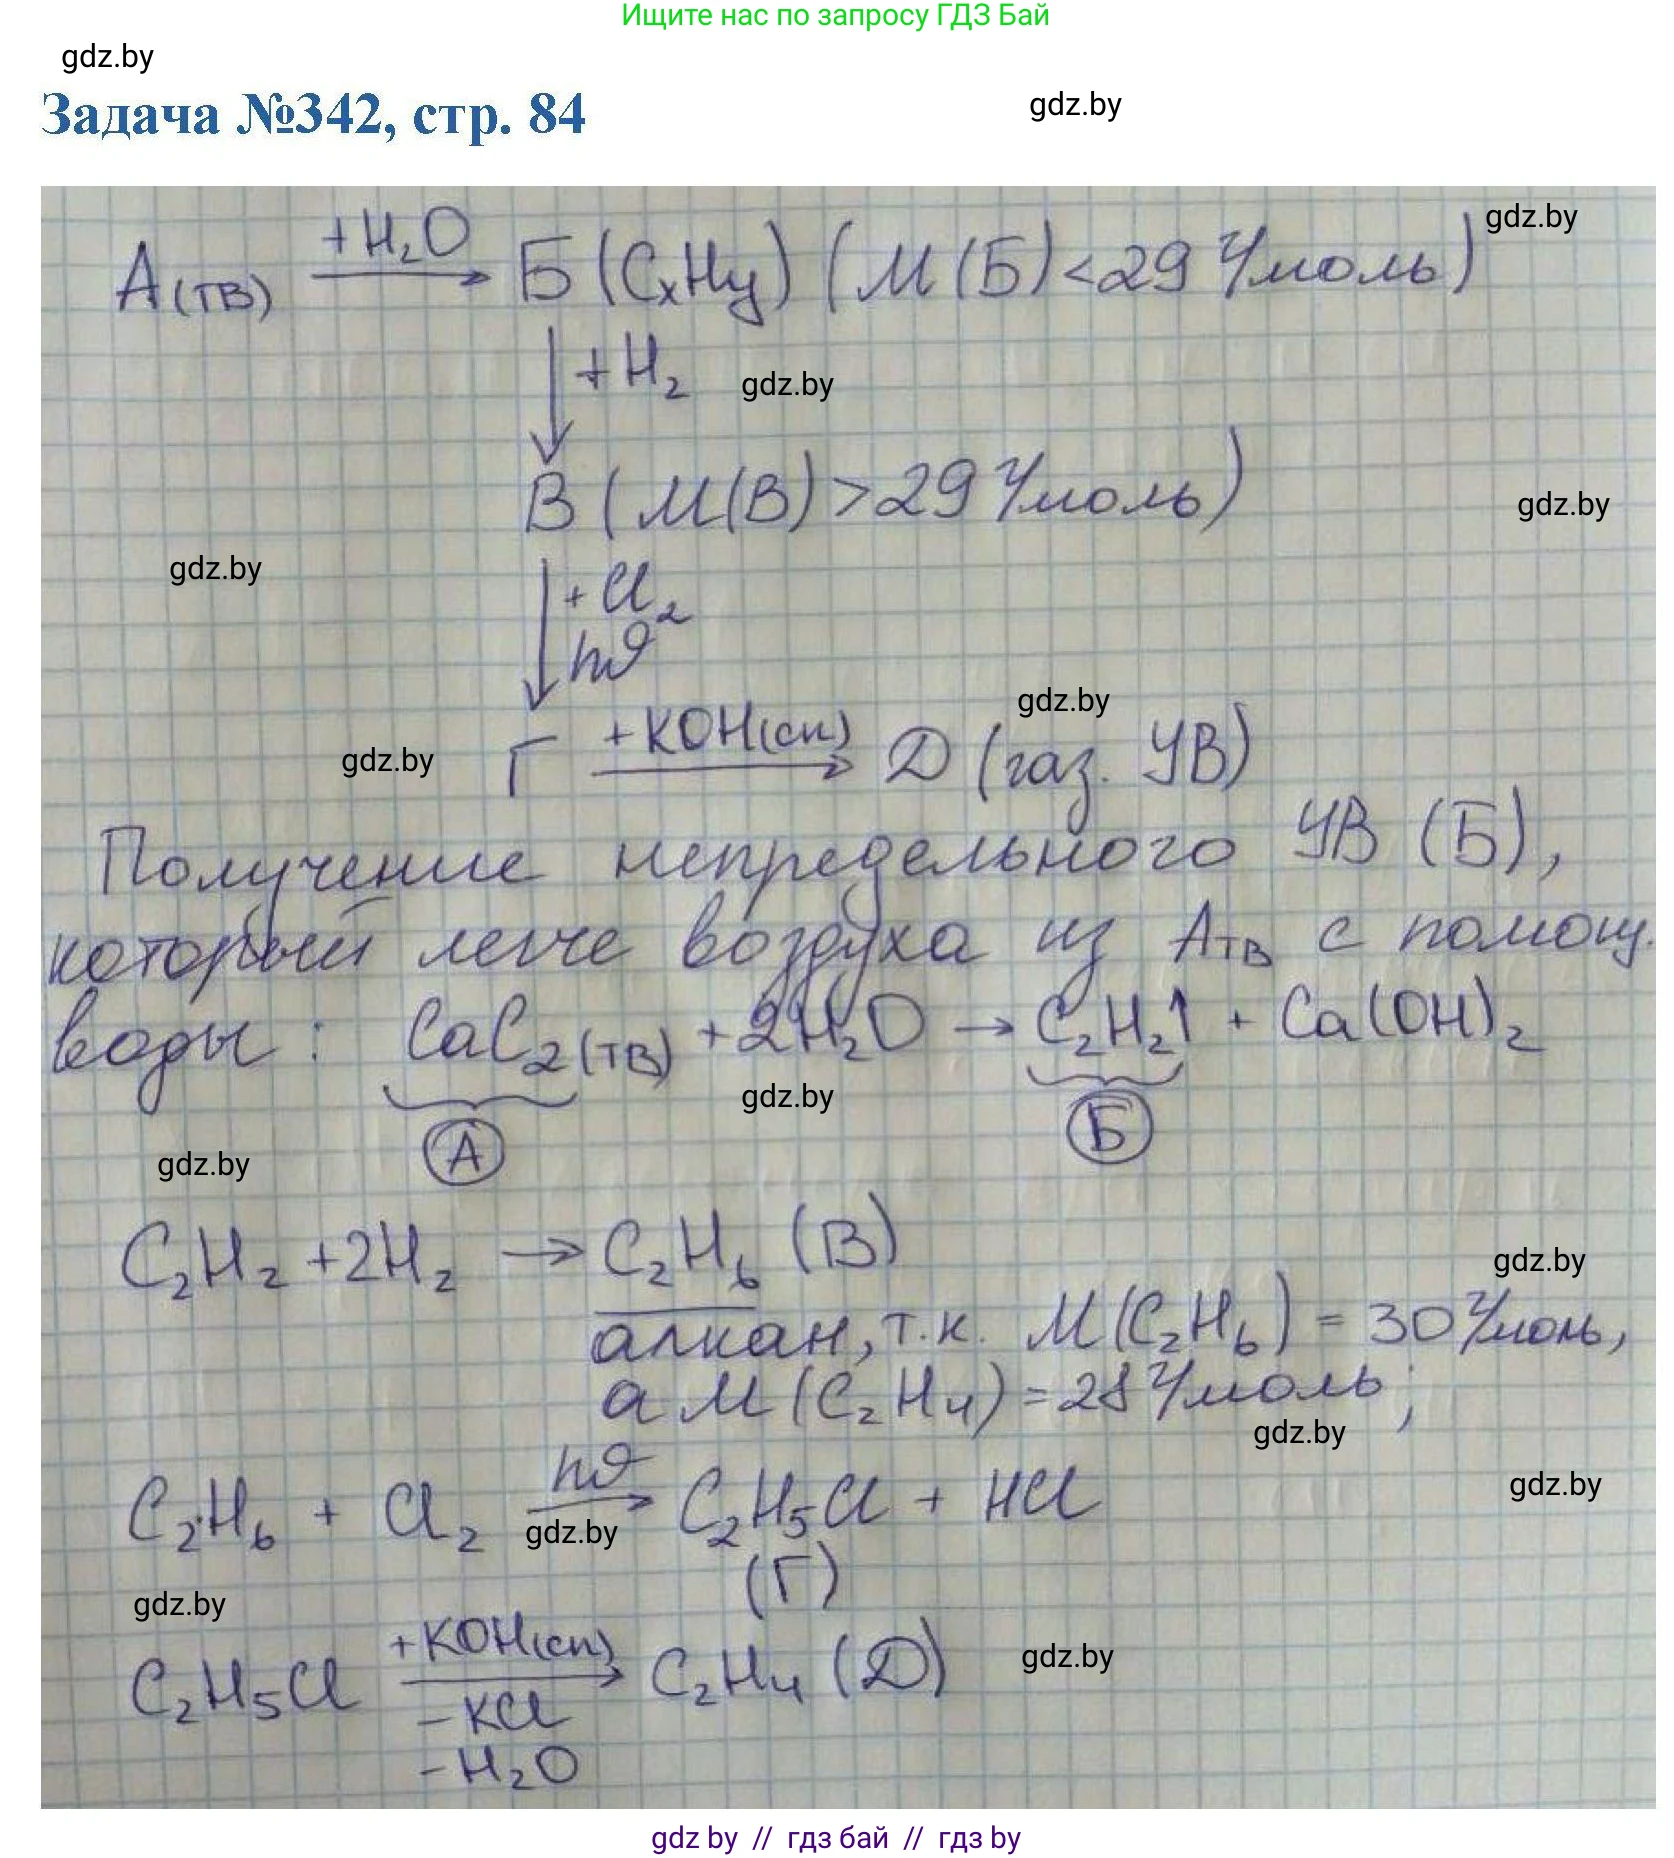 Ищите нас по запросу ГДЗ Бай
gdz.by
Задача №342, стр. 84
gdz.by
gdz.by
A(тв) +H₂O → Б (CₓHy) (M(Б)<29 г/моль)
↓ +H₂
gdz.by
В (M(В)>29 г/моль)
gdz.by
gdz.by
↓ +Cl₂
hϑ
gdz.by
gdz.by
Г +KOH(сп) → D (газ. УВ)
Получение непредельного УВ (Б),
который легче воздуха из Aтв с помощ.
воды: CaC₂(тв) + 2H₂O → C₂H₂↑ + Ca(OH)₂
gdz.by
А Б
gdz.by
C₂H₂ + 2H₂ → C₂H₆ (В)
gdz.by
алкан, т.к. M(C₂H₆) = 30 г/моль,
а M(C₂H₄) = 28 г/моль;
gdz.by
gdz.by
C₂H₆ + Cl₂ hϑ → C₂H₅Cl + HCl
gdz.by
(Г)
gdz.by
gdz.by
C₂H₅Cl +KOH(сп) → C₂H₄ (D)
-KCl
-H₂O
gdz by // гдз бай // гдз by